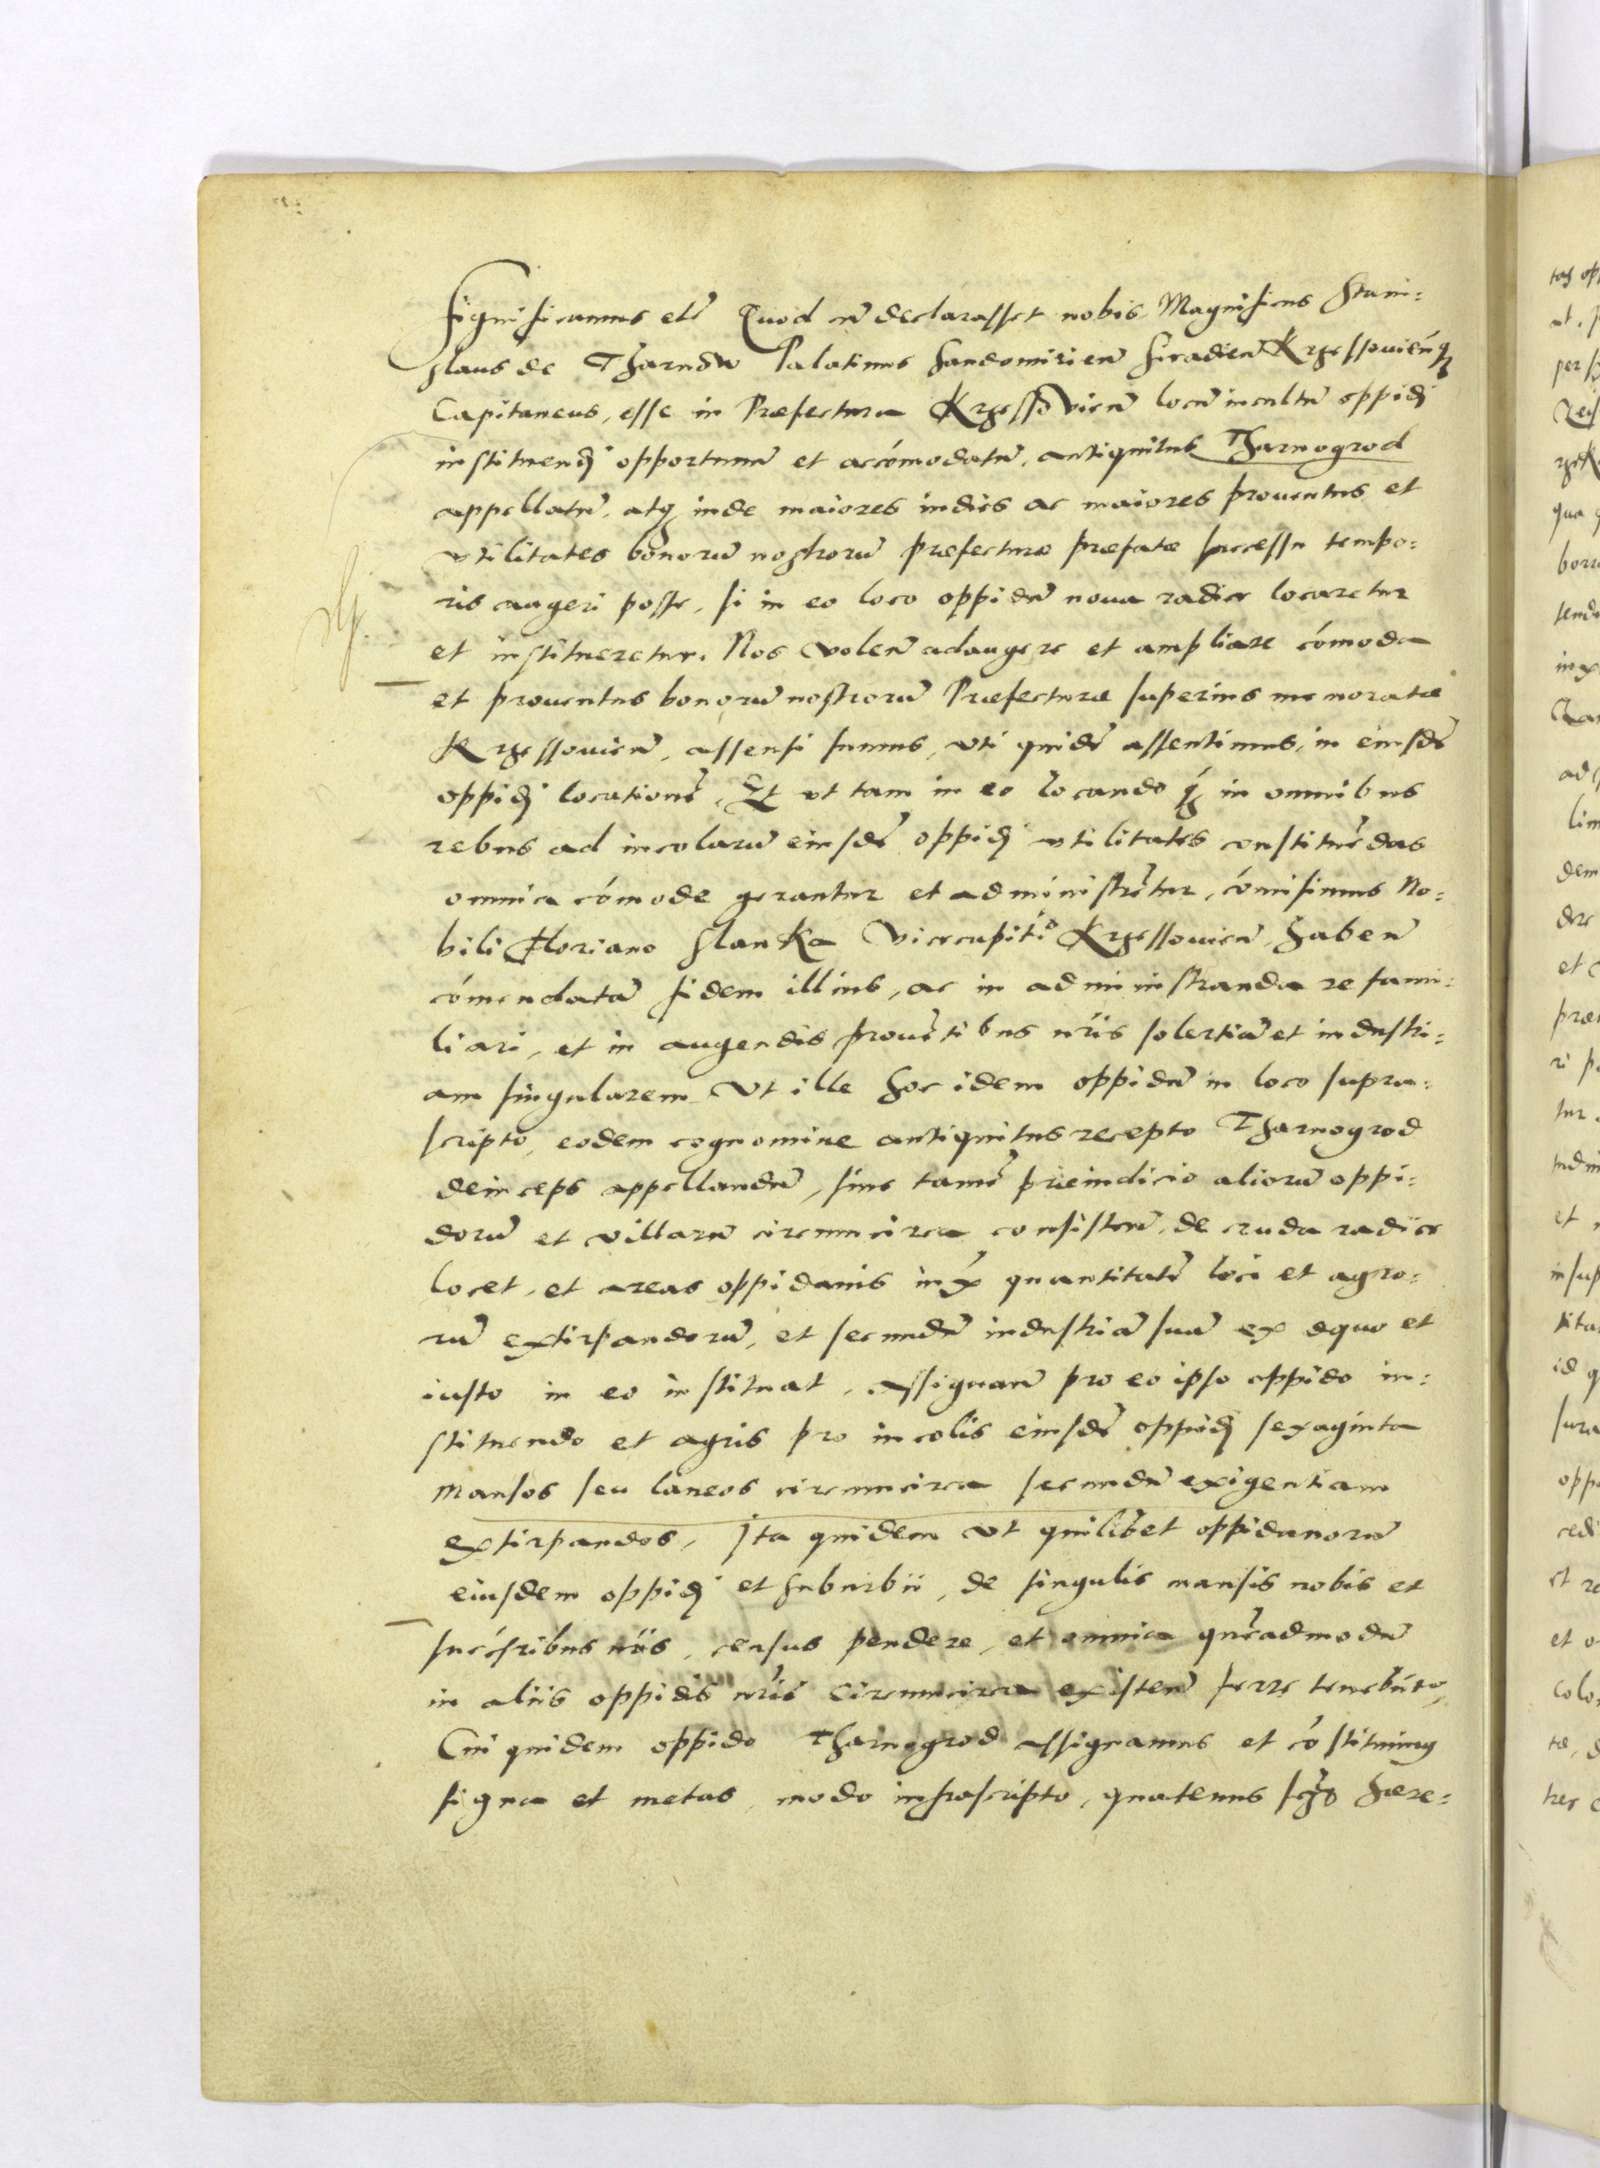 Significamus etc̃ Quod cũ declarasset nobis Magnificus Stani=
slaus de Tharnow Palatinus Sandomirieñ Siradieñ Krzessovieñq̃
Capitaneus, esse in Præfectura Krzessovieñ locũ incultũ oppidi
instituendi opportunũ et accom̃odatũ, antiquitus Tharnogrod
appellatũ, atq̃ inde maiores indies ac maiores proventus et
vtilitates bonorũ nostrorũ præfecturæ præfatæ successu tempo=
ris augeri posse, si in eo loco oppidũ noua radice locaretur
et institueretur. Nos voleñ adaugere et ampliare com̃oda
et prouentus bonorũ nostrorũ Præfecturæ superius memoratæ
Krzessouieñ, assensi sumus, vti quidẽ assentimus, in eiusdẽ
oppidi locationẽ, Et vt tam in eo locando q̃ in omnibus
rebus ad incolarũ eiusdẽ oppidi vtilitates constituẽdas
omnia com̃ode gerantur et administrẽtur, com̃isimus No=
bili Floriano Slanka Vicecapitẽo Krzessouieñ, habeñ
com̃endatã fidem illius, ac in administranda re fami=
liari, et in augendis prouẽtibus nr̃is solertiã et industri=
am singularem Vt ille hoc idem oppidũ in loco supra=
scripto, eodem cognomine antiquitus recepto Tharnogrod
deinceps appellandũ, sine tamẽ præiudicio aliorũ oppi=
dorũ et villarũ circumcirca consisteñ, de cruda radice
locet, et areas oppidanis iux̃ quantitatẽ loci et agro=
rũ extirpandorũ, et secundũ industriã suã ex æquo et
iusto in eo instituat, assignañ pro eo ipso oppido in=
stituendo et agris pro incolis eiusdẽ oppidi sexaginta
mansos seu laneos circumcirca secundũ exigentiam
extirpandos, Ita quidem vt quilibet oppidanorũ
eiusdem oppidi et suburbii, de singulis mansis nobis et
succ̃sribus nr̃is, census pendere, et omnia quẽadmodũ
in aliis oppidis nr̃is circumcirca existeñ ferre tenebitur,
Cui quidem oppido Tharnogrod assignamus et cõstituimus
signa et metas, modo infrascripto, quatenus hære=